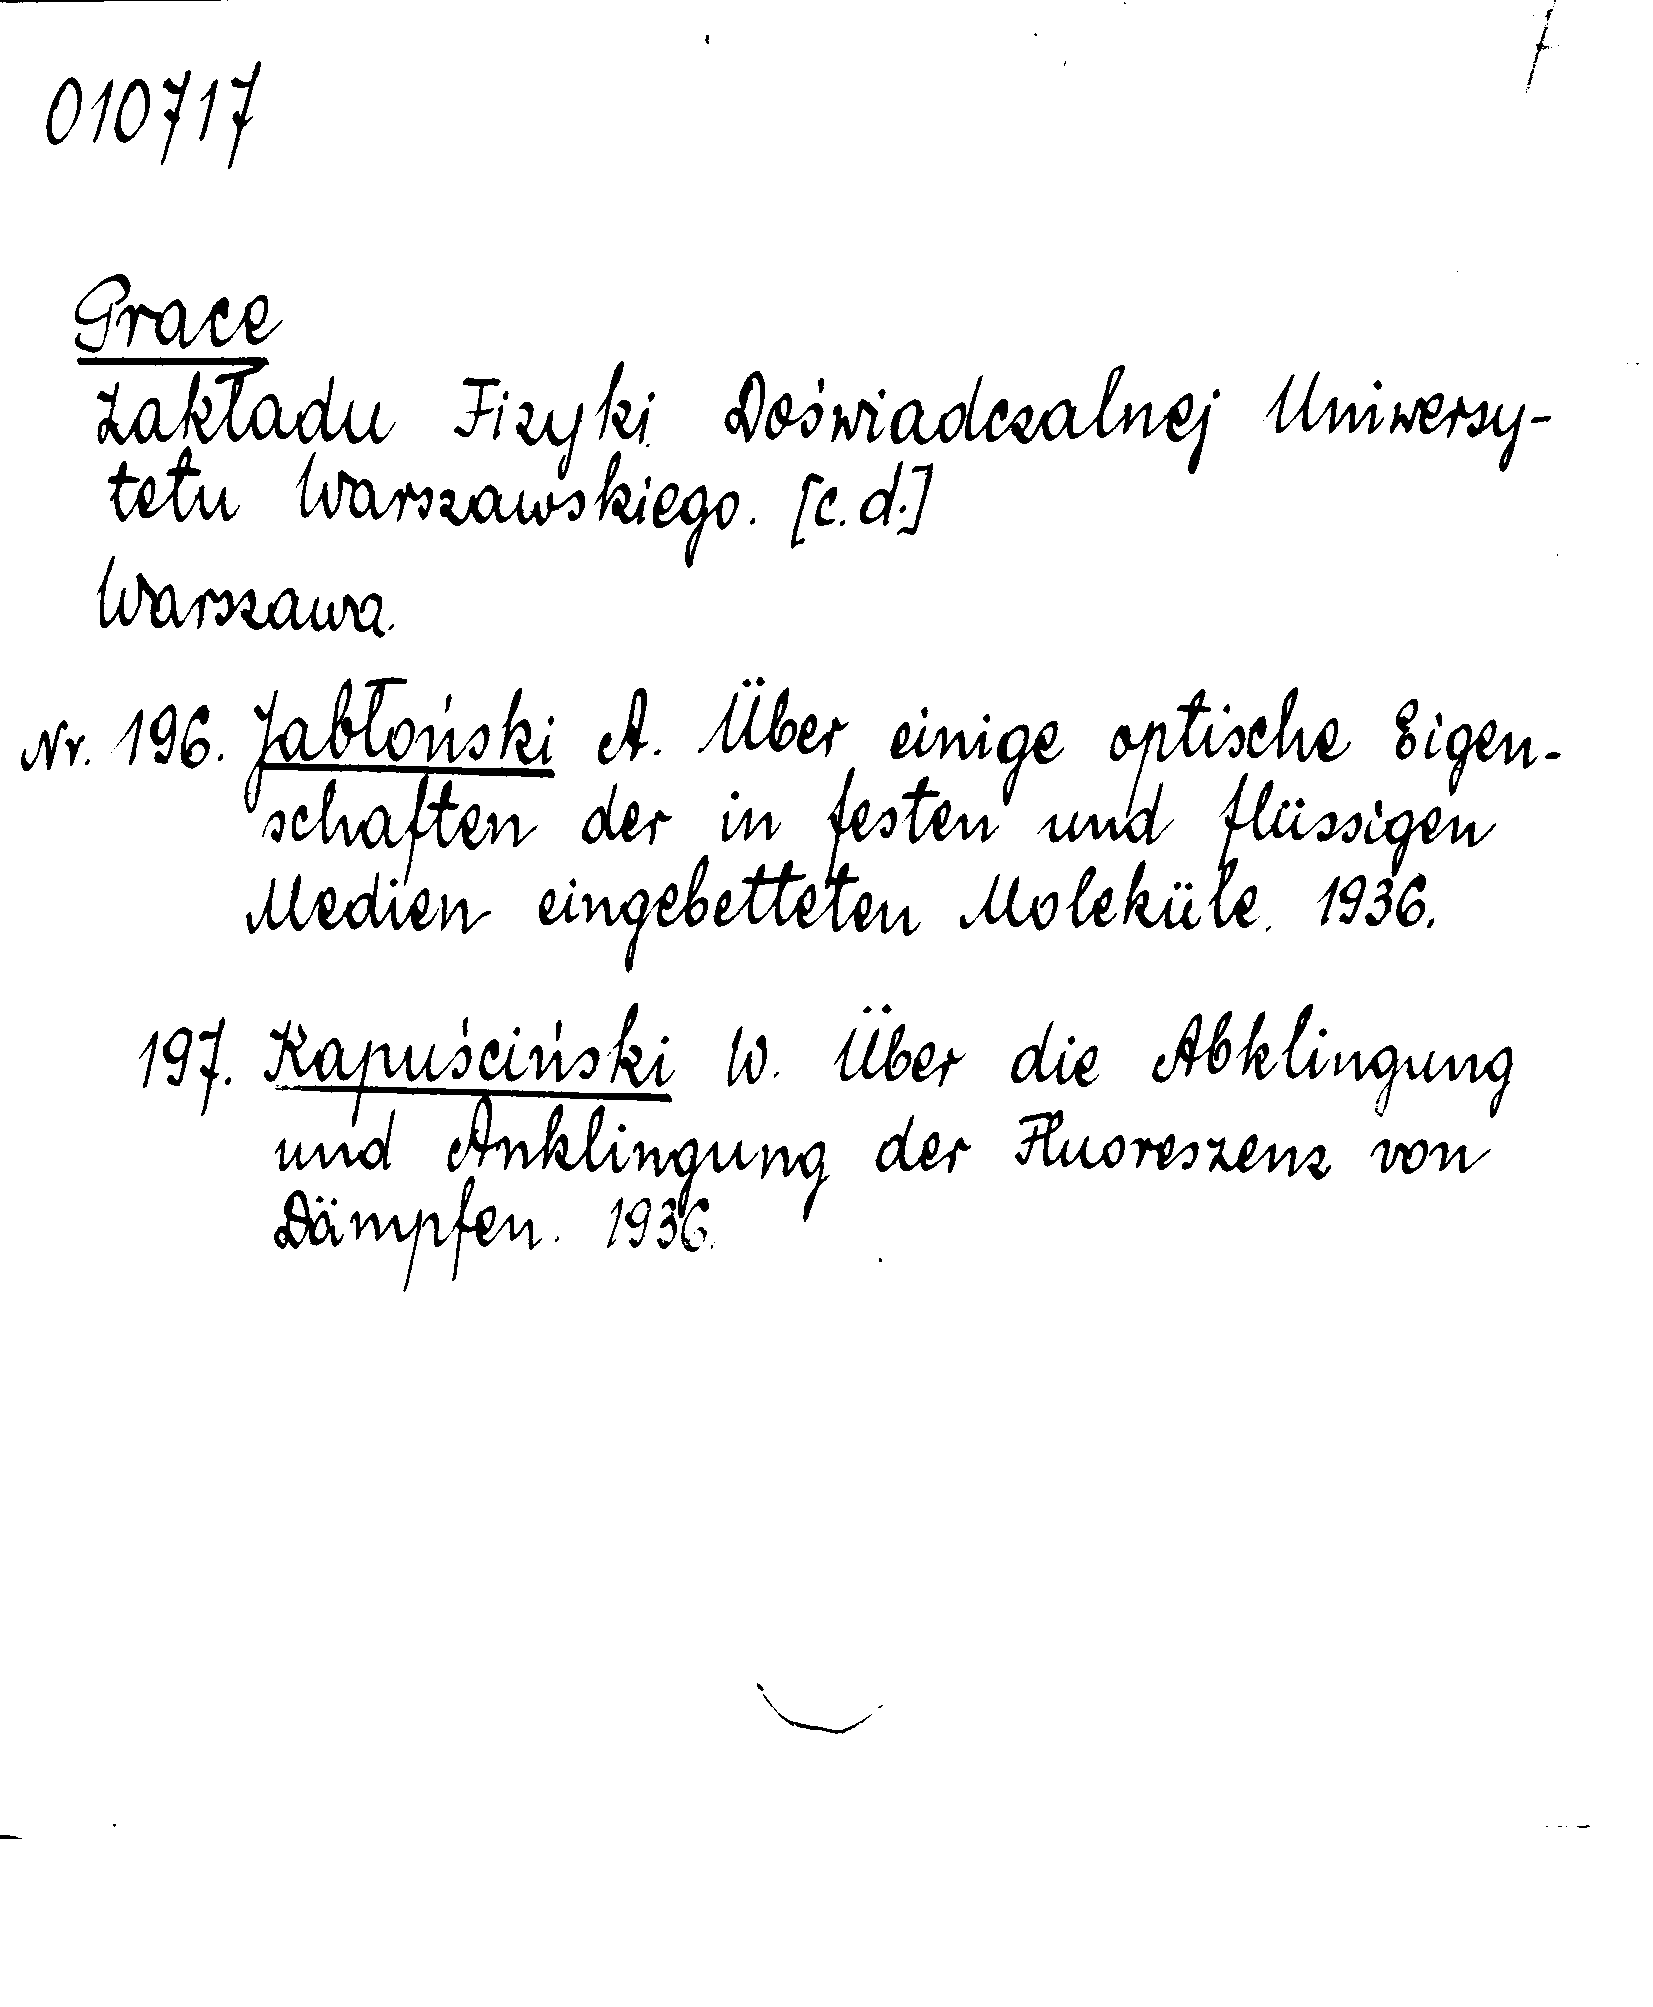 010717
Prace
Zakładu Fizyki Doświadczalnej Uniwersy-
tetu Warszawskiego. [c.d.]
Warszawa.
Nr. 196. Jabłoński A. Über einige optische Eigen-
schaften der in festen und flüssigen
Medien eingebetteten Moleküle. 1936.
197. Kapuściński W. Über die Abklingung
und Anklingung der Fluoreszenz von
Dämpfen. 1936.